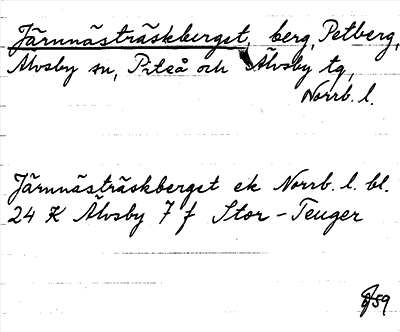 Järnnästräskberget, berg, Petberg,
Älvsby sn, Piteå och Älvsby tg,
Norrb. l.
Järnnästräskberget ek Norrb. l. bl.
24 K Älvsby 7 f Stor-Teuger
59